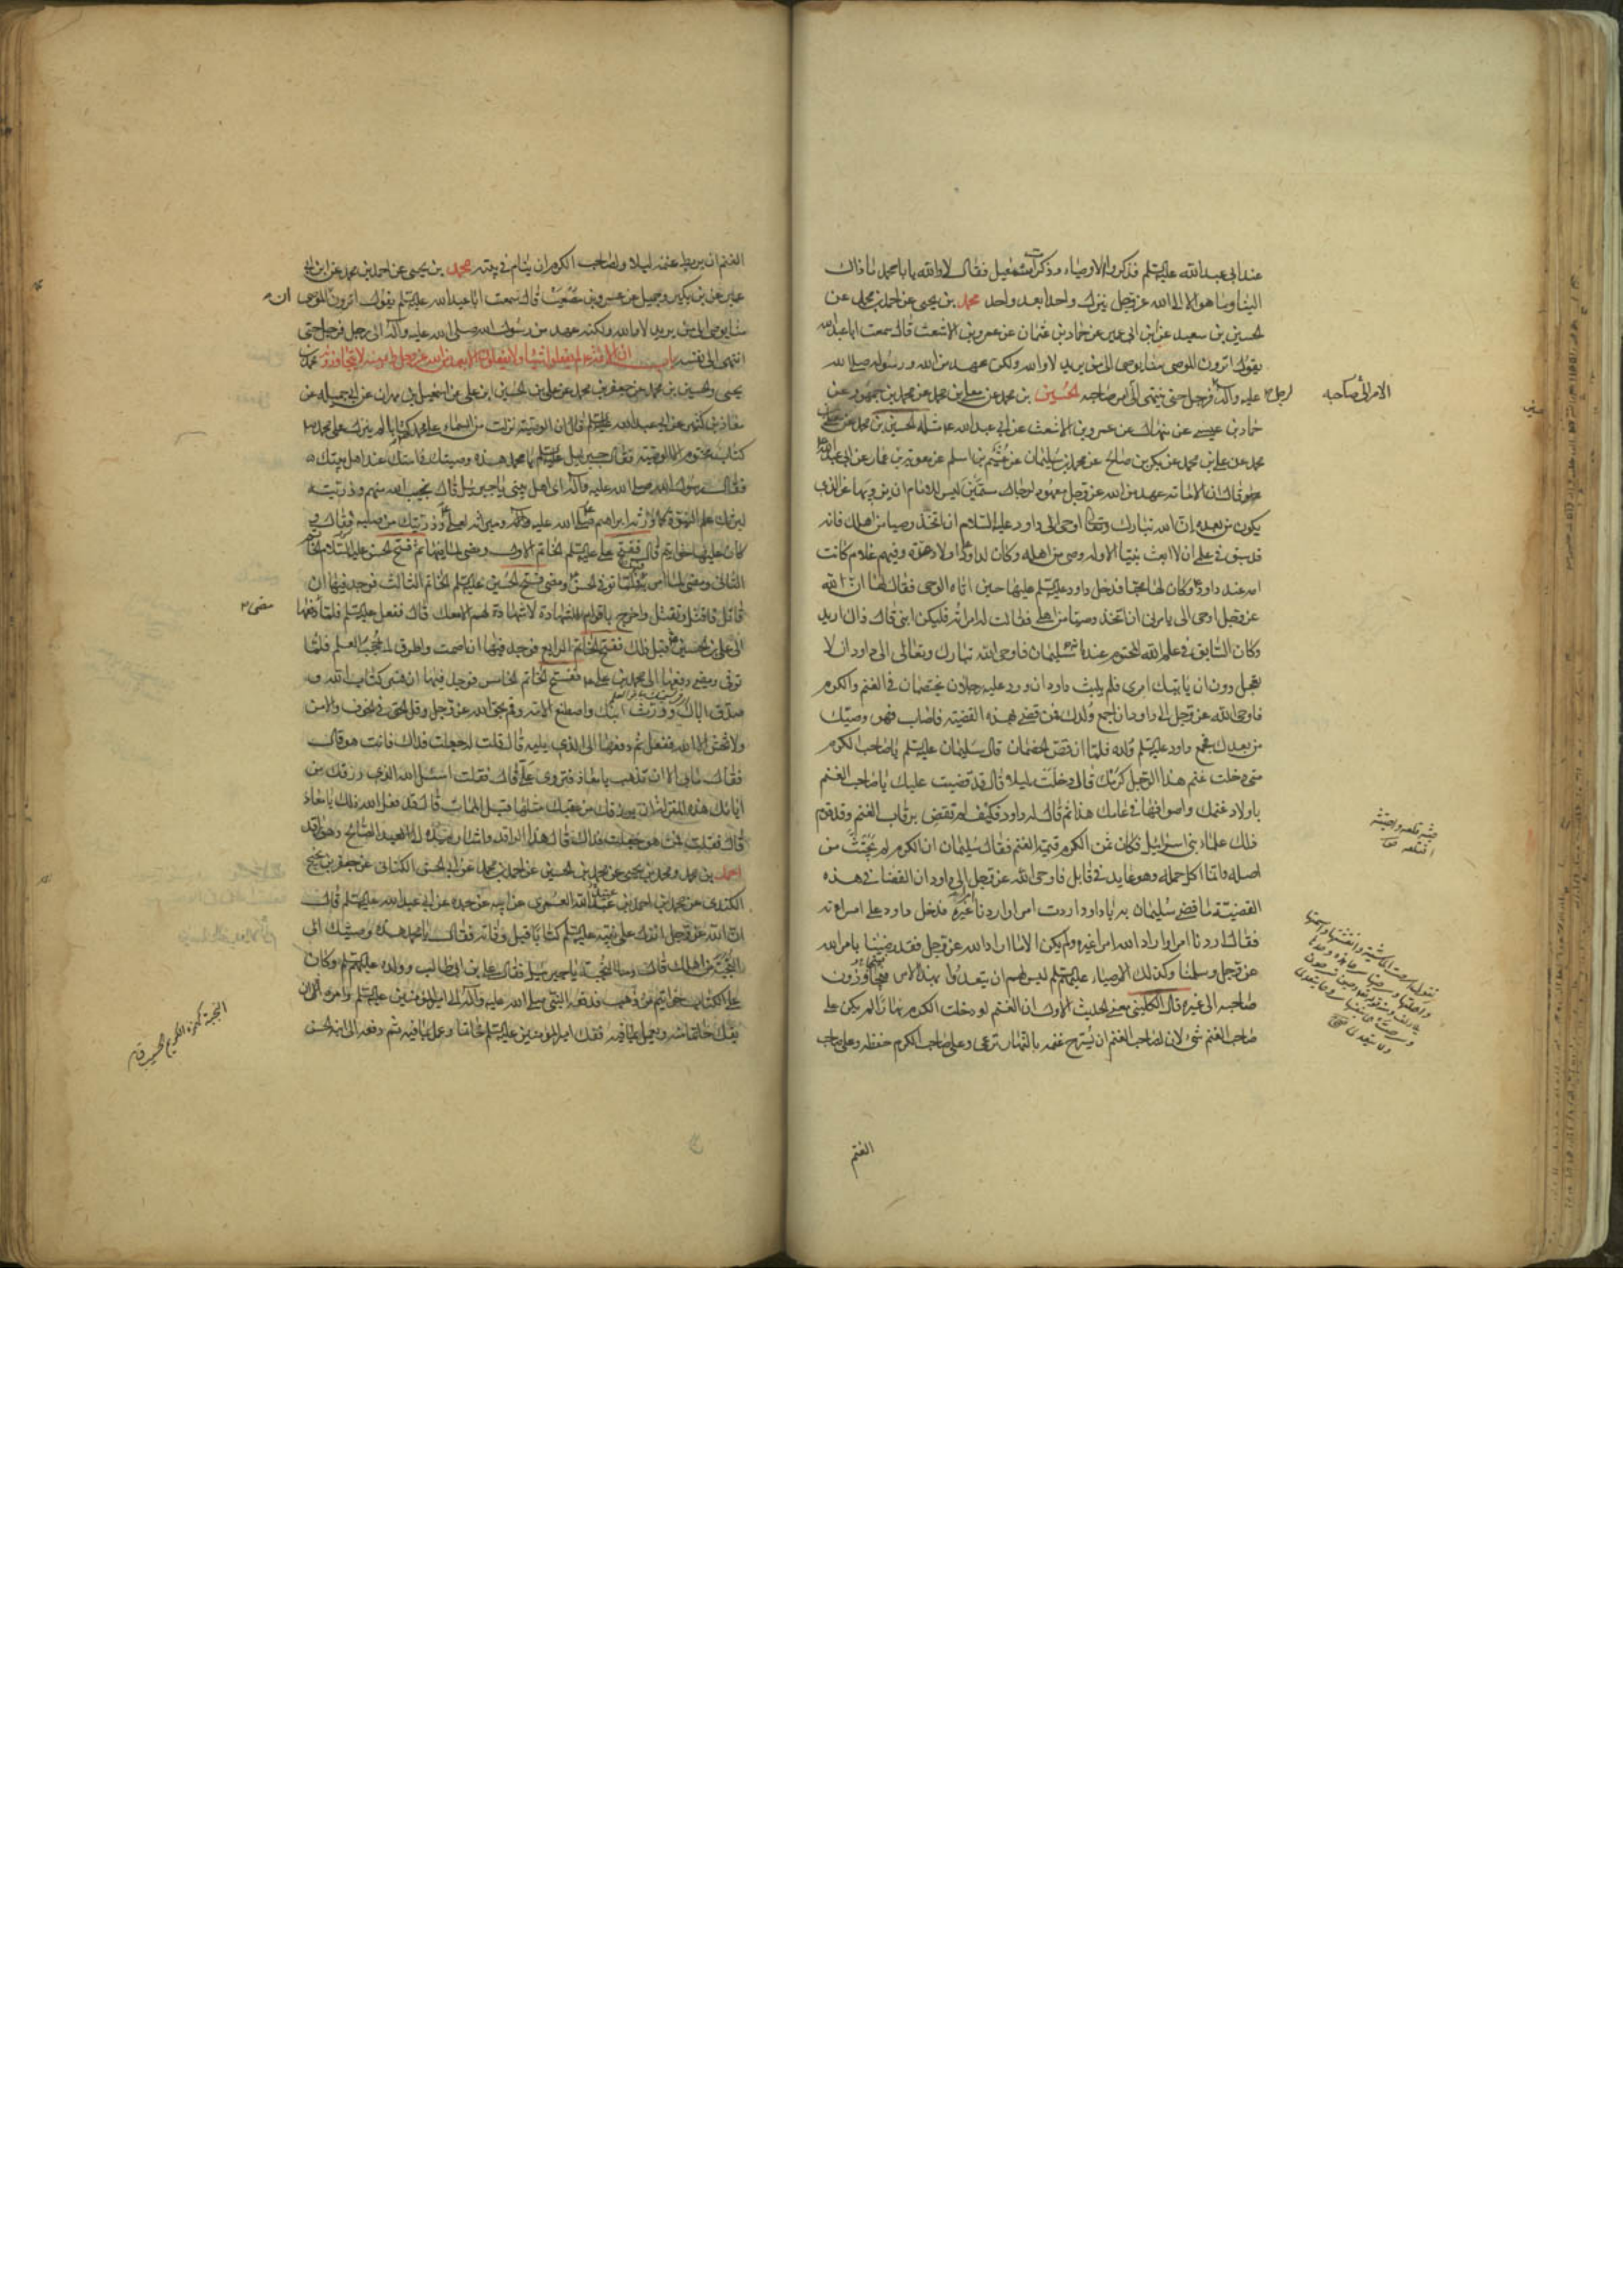 عند ابى عبد الله عليه السلم فذكروا الاوصياء وذكرت اسمعيل فقال لا والله يا با محمد ما ذاك
الينا وما هو الا الى الله عز وجل ينزل واحدا بعد واحد محمد بن يحيى عن احمد بن محمد عن
الحسين بن سعيد عن ابن ابى عمير عن حماد بن عثمان عن عمرو بن الاشعث قال سمعت ابا عبد الله
يقول اترون الموصى منا يوصى الى من يريد لا والله ولكن عهد من الله ورسوله صلى الله
عليه وآله لرجل فرجل حتى ينتهى الامر الى صاحبه الحسين بن محمد عن معلى بن محمد عن محمد بن جمهور عن
حماد بن عيسى عن منهال عن عمرو بن الاشعث عن ابى عبد الله ع مثله الحسين بن محمد عن معلى بن
محمد عن على بن محمد عن بكر بن صالح عن محمد بن سليمان عن عيثم بن اسلم عن معوية بن عمار عن ابى عبد الله
قال ان الامامة عهد من الله عز وجل معهود لرجال مسمين ليس للامام ان يزويها عن الذى
يكون من بعده ان الله تبارك وتعالى اوحى الى داود عليه السلام ان اتخذ وصيا من اهلك فانه
قد سبق فى علمى ان لا ابعث نبيا الا وله وصى من اهله وكان لداود اولاد عدة وفيهم غلام كانت
امه عند داود وكان لها محبا فدخل داود عليه السلم عليها حين اتاه الوحى فقال لها ان الله
عز وجل اوحى الى يامرنى ان اتخذ وصيا من اهلى فقالت له امراته فليكن ابنى قال ذاك اريد
وكان السابق فى علم الله المحتوم عنده انه سليمان فاوحى الله تبارك وتعالى الى داود ان لا
تعجل دون ان ياتيك امرى فلم يلبث داود ان ورد عليه رجلان يختصمان فى الغنم والكرم
فاوحى الله عز وجل الى داود ان اجمع ولدك فمن قضى بهذه القضية فاصاب فهو وصيك
من بعدك فجمع داود عليه السلم ولده فلما ان قص الخصمان قال سليمان عليه السلم يا صاحب الكرم
متى دخلت غنم هذا الرجل كرمك قال دخلت ليلا قال قد قضيت عليك يا صاحب الغنم
باولاد غنمك واصوافها فى عامك هذا ثم قال له داود فكيف لم تقض برقاب الغنم وقد قوم
ذلك علماء بنى اسرائيل فكان ثمن الكرم قيمة الغنم فقال سليمان ان الكرم لم يجتث من
اصله وانما اكل حمله وهو عايد فى قابل فاوحى الله عز وجل الى داود ان القضاء فى هذه
القضية ما قضى سليمان به يا داود اردت امرا واردنا امرا غيره فدخل داود على امراته
فقال اردنا امرا واراد الله امرا غيره ولم يكن الا ما اراد الله عز وجل فقد رضينا بامر الله
عز وجل وسلمنا وكذلك الاوصياء عليهم السلم ليس لهم ان يتعدوا بهذا الامر فيجاوزون
صاحبه الى غيره قال الكلينى معنى الحديث الاول ان الغنم لو دخلت الكرم نهارا لم يكن على
صاحب الغنم شىء لان لصاحب الغنم ان يسرح غنمه بالنهار ترعى وعلى صاحب الكرم حفظه وعلى صاحب
الغنم
الامر الى صاحبه
الغنم ان يربط غنمه ليلا ولصاحب الكرم ان ينام فى بيته محمد بن يحيى عن احمد بن محمد عن ابن ابى
عمير عن ابن بكير وجميل عن عمرو بن مصعب قال سمعت ابا عبد الله عليه السلم يقول اترون ان الموصى
منا يوصى الى من يريد لا والله ولكنه عهد من رسول الله صلى الله عليه وآله الى رجل فرجل حتى
انتهى الى نفسه باب ان الائمة ع لم يفعلوا شيئا ولا يفعلون الا بعهد من الله عز وجل وامر منه لا يتجاوزونه محمد بن
يحيى والحسين بن محمد عن جعفر بن محمد عن على بن الحسين بن على عن اسمعيل بن مهران عن ابى جميلة عن
معاذ بن كثير عن ابى عبد الله عليه السلم قال ان الوصية نزلت من السماء على محمد كتابا لم ينزل على محمد ص
كتاب مختوم الا الوصية فقال جبرئيل عليه السلم يا محمد هذه وصيتك فى امتك عند اهل بيتك
فقال رسول الله صلى الله عليه وآله اى اهل بيتى يا جبرئيل قال نجيب الله منهم وذريته
ليرثك علم النبوة كما ورثه ابراهيم وميراثه لعلى وذريتك من صلبه فقال و
كان عليها خواتيم قال ففتح على عليه السلم الخاتم الاول ومضى لما فيها ثم فتح الحسن عليه السلام الخاتم
الثانى ومضى لما امر به فيها فلما توفى الحسن ومضى فتح الحسين عليه السلم الخاتم الثالث فوجد فيها ان
قاتل فاقتل وتقتل واخرج باقوام للشهادة لا شهادة لهم الا معك قال ففعل عليه السلم فلما مضى دفعها
الى على بن الحسين قبل ذلك ففتح الخاتم الرابع فوجد فيها ان اصمت واطرق لما حجب العلم فلما
توفى ومضى دفعها الى محمد بن على ع ففتح الخاتم الخامس فوجد فيها ان فسر كتاب الله و
صدق اباك وورث ابنك واصطنع الامة وقم بحق الله عز وجل وقل الحق فى الخوف والامن
ولا تخش الا الله ففعل ثم دفعها الى الذى يليه قال قلت له جعلت فداك فانت هو قال
فقال ما بى الا ان تذهب يا معاذ فتروى على قال فقلت اسئل الله الذى رزقك من
آبائك هذه المنزلة ان يرزقك من عقبك مثلها قبل الممات قال قد فعل الله ذلك يا معاذ
قال فقلت فمن هو جعلت فداك قال هذا الراقد واشار بيده الى العبد الصالح وهو راقد
احمد بن محمد ومحمد بن يحيى عن محمد بن الحسين عن احمد بن محمد عن ابى الحسن الكنانى عن جعفر بن نجيح
الكندى عن محمد بن احمد بن عبيد الله العمرى عن ابيه عن جده عن ابى عبد الله عليه السلم قال
ان الله عز وجل انزل على نبيه عليه السلم كتابا قبل وفاته فقال يا محمد هذه وصيتك الى
النجبة من اهلك قال وما النجبة يا جبرئيل فقال على بن ابى طالب وولده عليهم السلم وكان
على الكتاب خواتيم من ذهب فدفعه النبى صلى الله عليه وآله الى امير المؤمنين عليه السلم وامره ان
يفك خاتما منه ويعمل بما فيه ففك امير المؤمنين عليه السلم خاتما وعمل بما فيه ثم دفعه الى ابنه الحسن
مضى